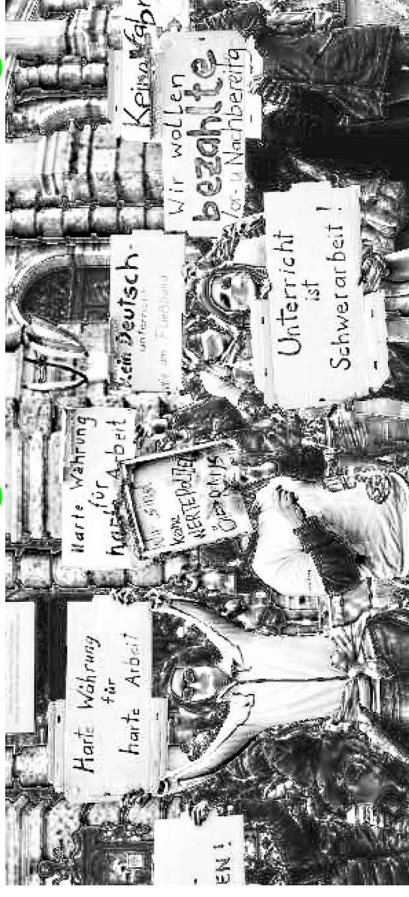 EN!
Harte Währung
für
harte Arbeit
Harte Währung
für
harte Arbeit
Wir sind
keine
WERTEPOLIZEI
kein Deutsch-
unterricht
am Fließband
Unterricht
ist
Schwerarbeit!
Wir wollen
bezahlte
Vor- u Nachbereitg